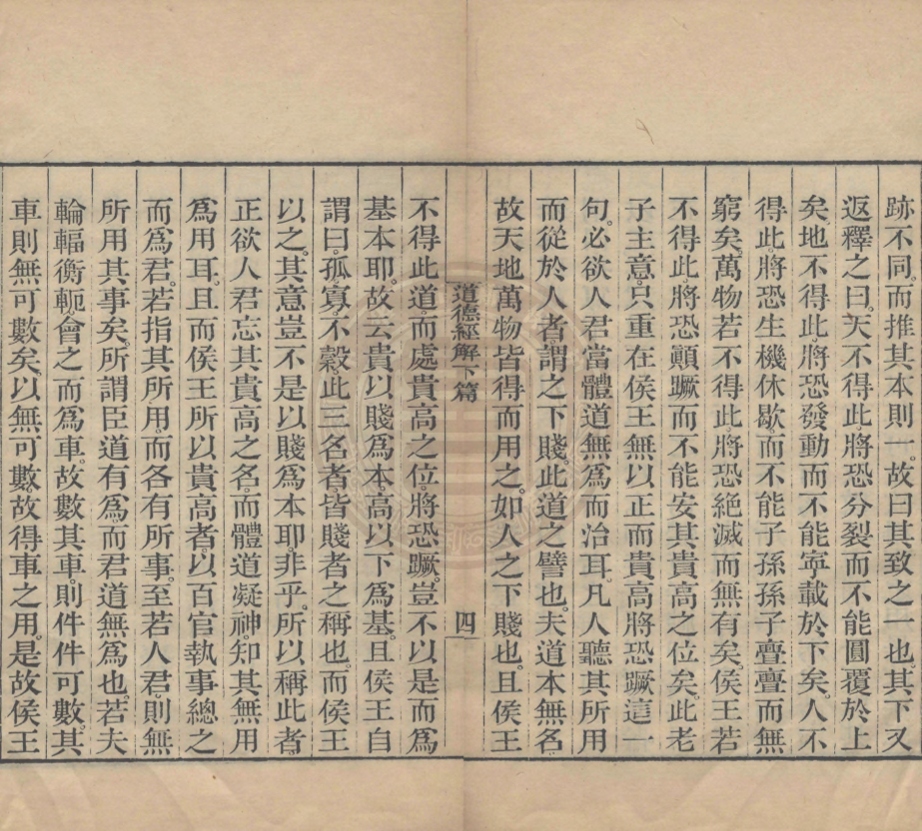 跡不同。而推其本則一。故曰其致之一也。其下又
返釋之曰。天不得此。將恐分裂而不能圓覆於上
矣。地不得此。將恐發動而不能寧載於下矣。人不
得此。將恐生機休歇而不能子孫孫子亹亹而無
窮矣。萬物若不得此。將恐絕滅而無有矣。侯王若
不得此。將恐顛蹶而不能安其貴高之位矣。此老
子主意。只重在侯王無以正而貴高將恐蹶這一
句。必欲人君當體道無爲而治耳。凡人聽其所用
而從於人者。謂之下賤。此道之譬也。夫道本無名。
故天地萬物皆得而用之。如人之下賤也。且侯王
道德經解下篇
四
不得此道。而處貴高之位。將恐蹶。豈不以是而爲
基本耶。故云貴以賤爲本。高以下爲基。且侯王自
謂曰孤寡不穀。此三名者。皆賤者之稱也。而侯王
以之。其意豈不是以賤爲本耶。非乎。所以稱此者。
正欲人君忘其貴高之名。而體道凝神。知其無用
爲用耳。且而侯王所以貴高者。以百官執事總之
而爲君。若指其所用。而各有所事。至若人君。則無
所用其事矣。所謂臣道有爲而君道無爲也。若夫
輪輻衡軛。會之而爲車。故數其車。則件件可數。其
車則無可數矣。以無可數。故得車之用。是故侯王